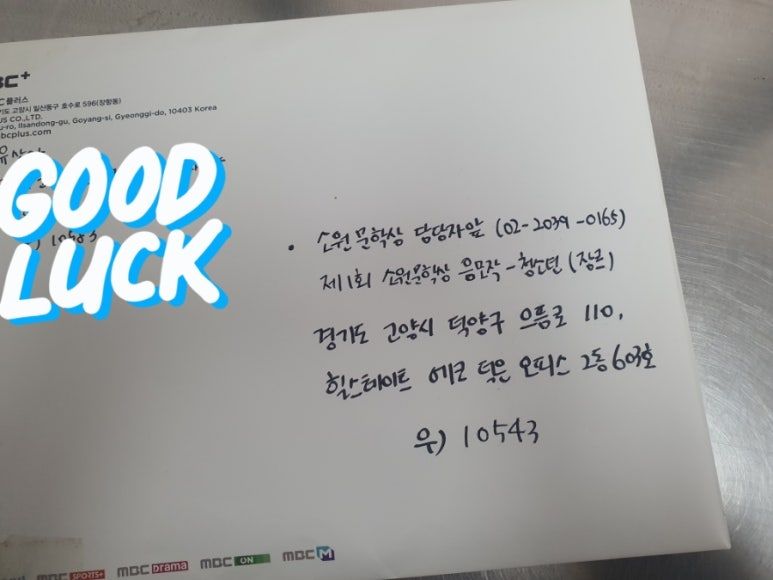 MBC+
C플러스
기도 고양시 일산동구 호수로 596(장항동)
US CO.,LTD.
u-ro, Ilsandong-gu, Goyang-si, Gyeonggi-do, 10403 Korea
bcplus.com
GOOD
LUCK
10583
• 소원문학상 담당자앞 (02-2039-0165)
제1회 소원문학상 응모작-청소년(장르)
경기도 고양시 덕양구 으뜸로 110,
힐스테이트 에코 덕은 오피스 2동 603호
우) 10543
MBC SPORTS+ MBC drama MBC ON MBC M